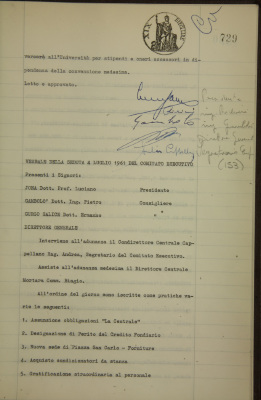 729
verserà all'Università per stipendio a nuovi assessori in di-
pendenza della convenzione medesima.
Letto e approvato.
(133)
VERBALE DELLA SEDUTA 4 LUGLIO 1961 DEL COMITATO ESECUTIVO
Presenti i Signori:
JONA Dott. Prof. Luciano Presidente
Dott. Ing. Pietro Consigliere
Dott. Ermanno "
DIRETTORE GENERALE
Interviene all'adunanza il Condirettore Centrale Cap-
pellaro Ing. Andrea, Segretario del Comitato Esecutivo.
Assiste all'adunanza medesima il Direttore Centrale
Mortara Comm. Biagio.
All'ordine del giorno sono inscritte come pratiche va-
rie le seguenti:
1. Assunzione obbligazioni "La Centrale"
2. Designazione di Perito del Credito Fondiario
3. Nuova sede di Piazza San Carlo - Forniture
4. Acquisto condizionatori da stanza
5. Gratificazione straordinaria al personale